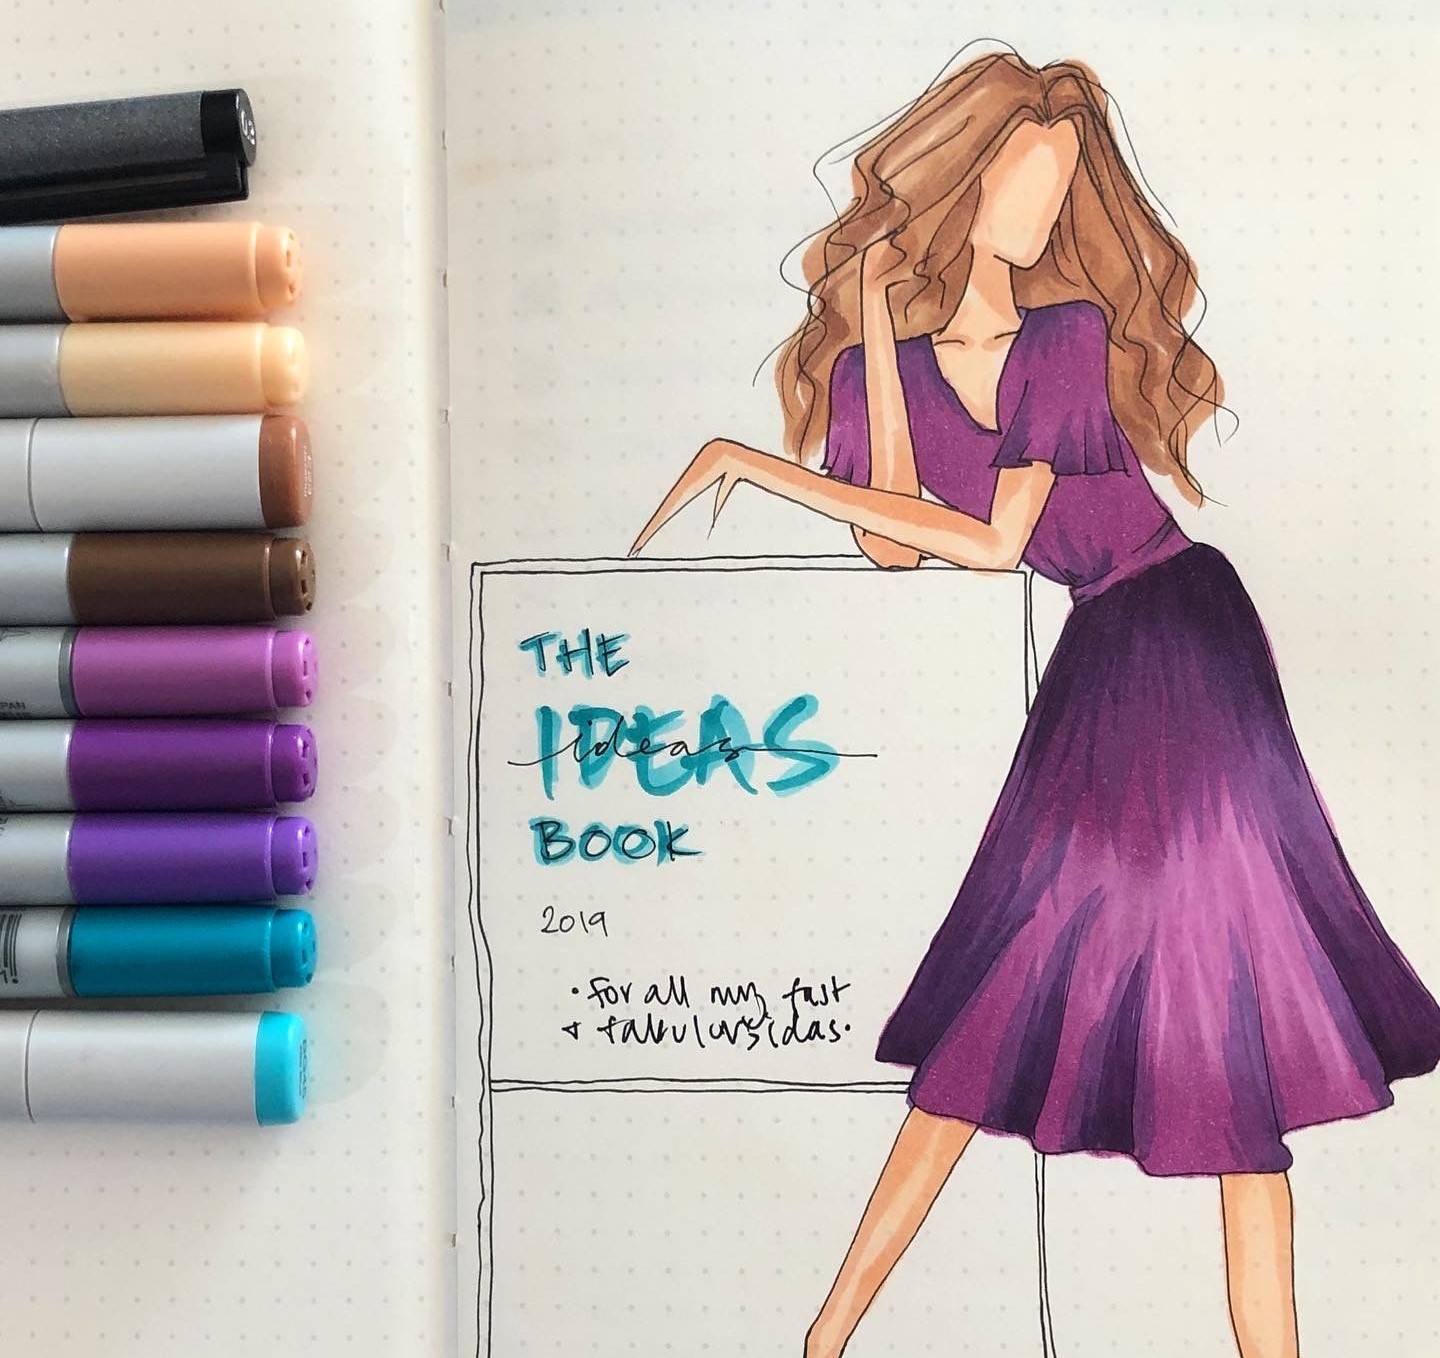 THE
IDEAS
ideas
BOOK
2019
• for all my fast
+ fabulous ideas •